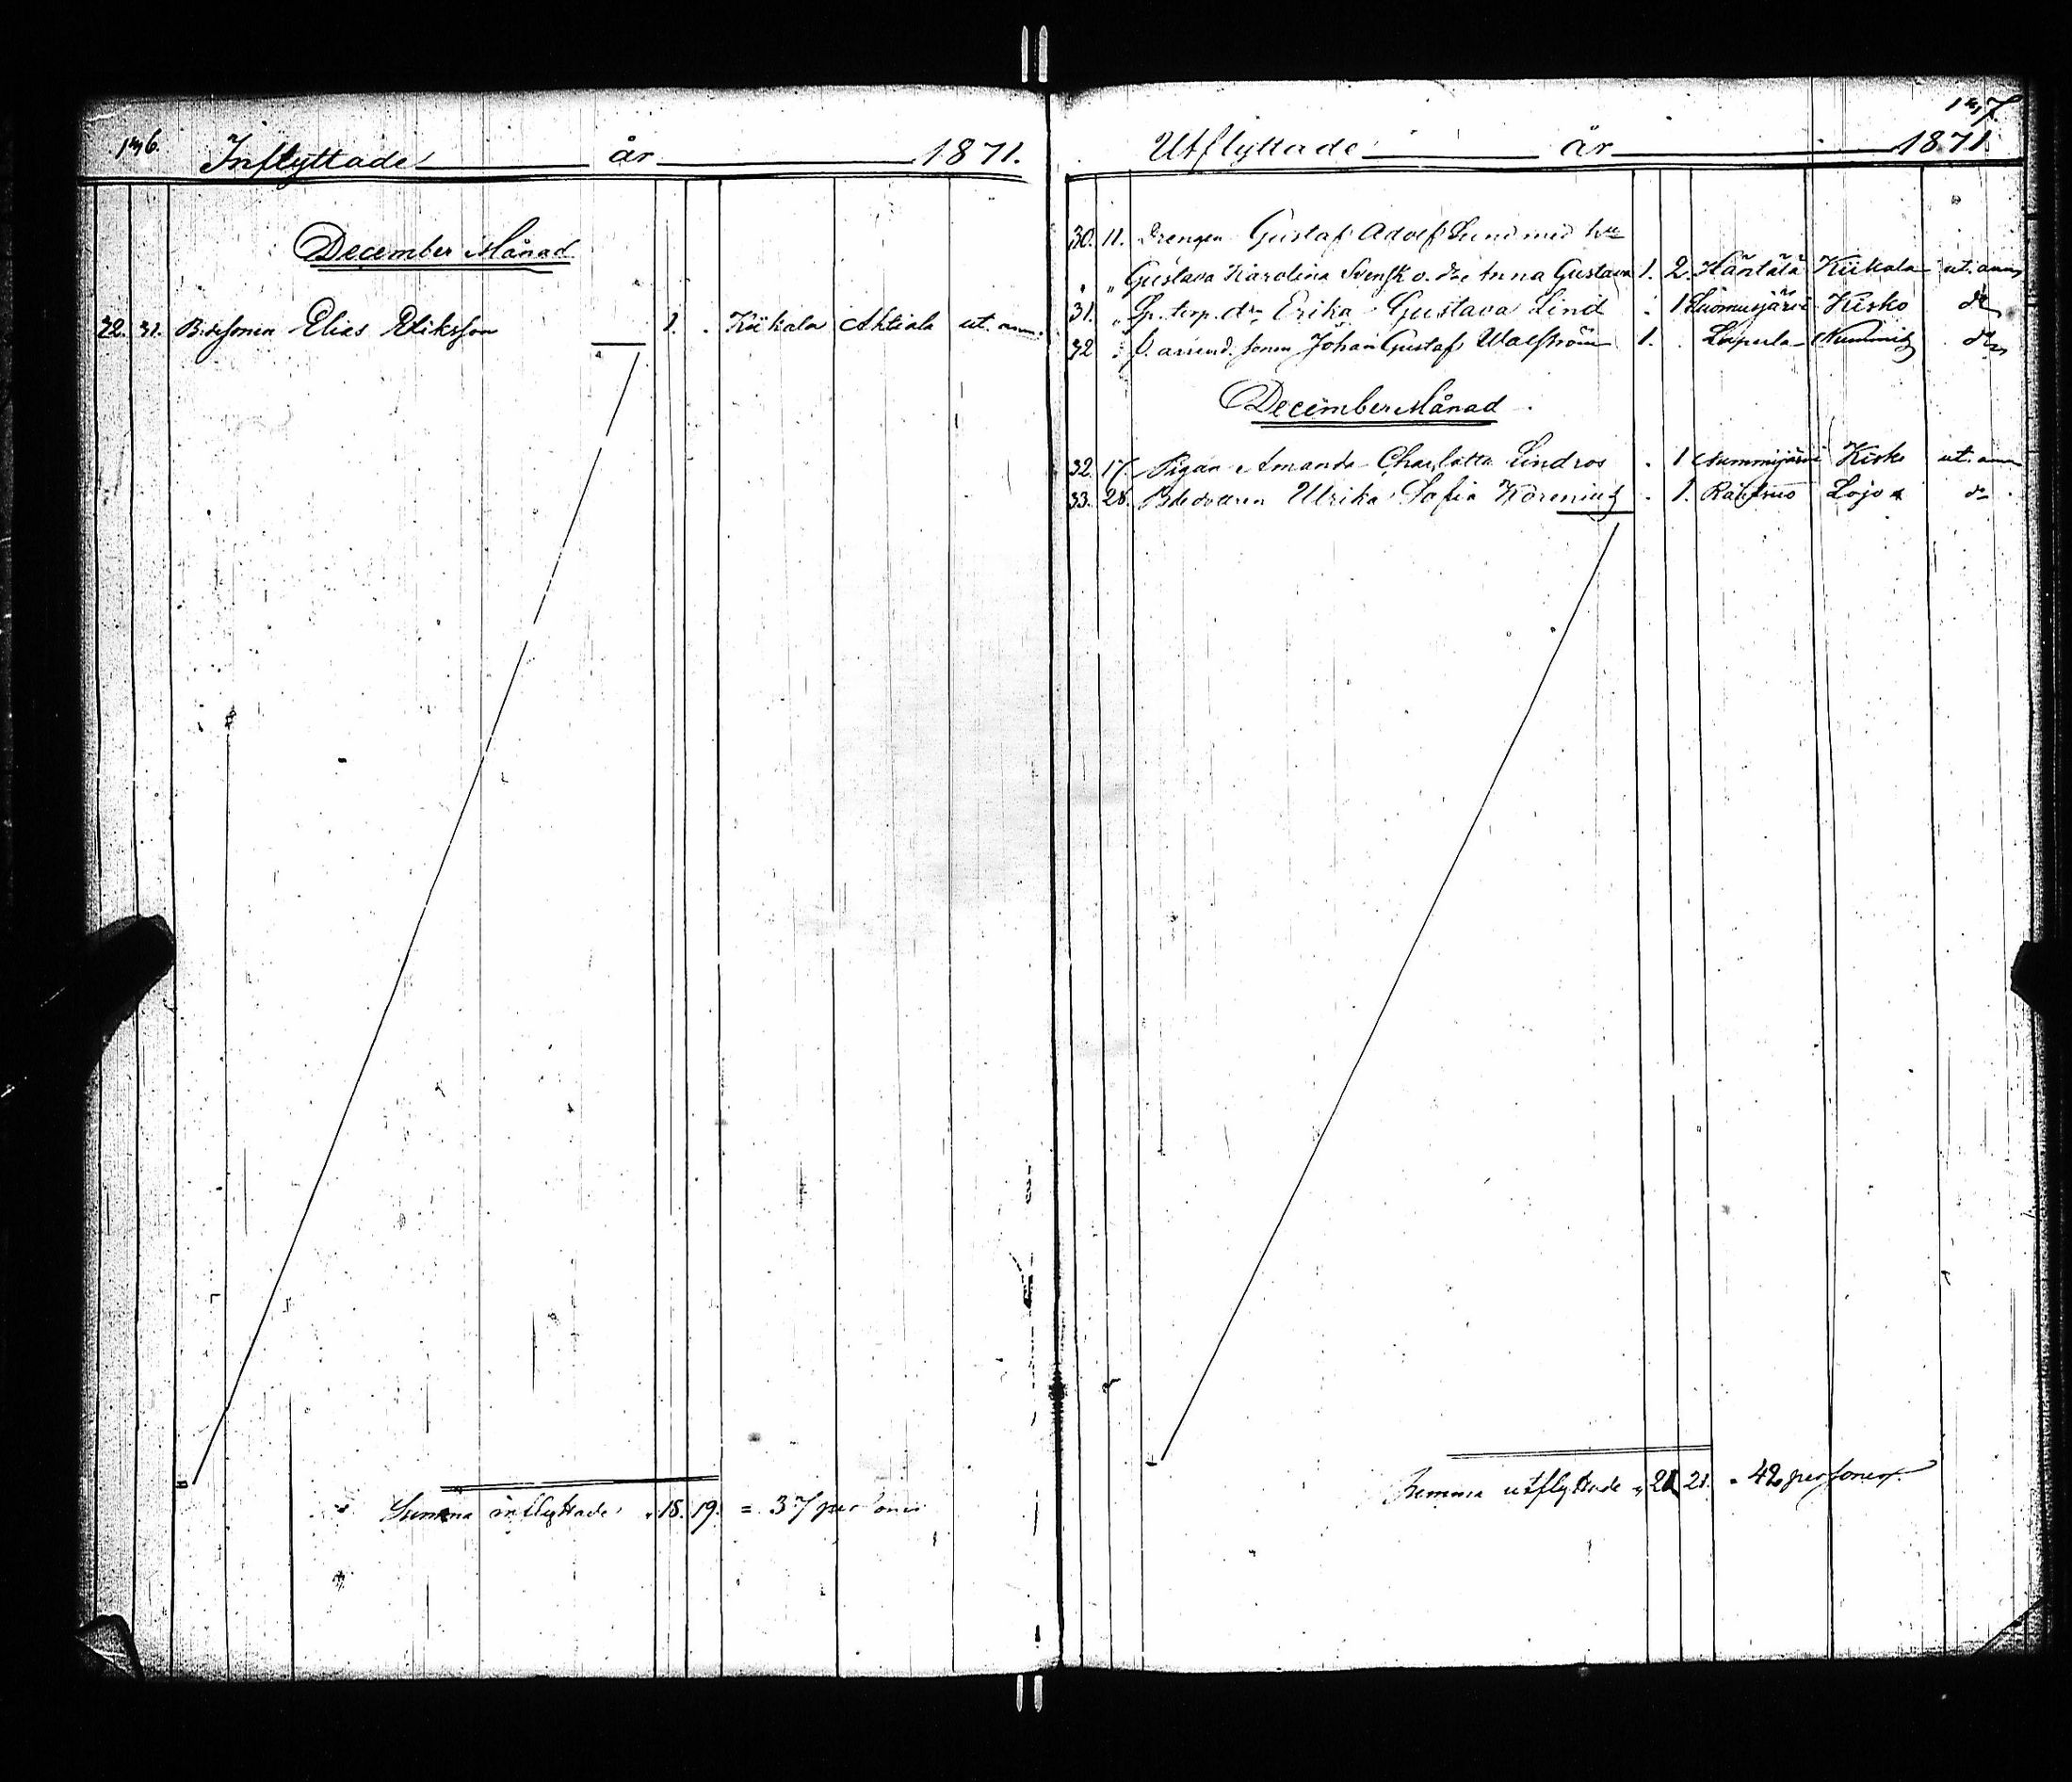 Inflyttade år 1871.
December Månad
32. 31. B.desonen Elias Eliksson 1. . Kiikala Ahtiala ut. anm.
Summa inflyttade 18. 19. = 37 personer
Utflyttade år 1871
30. 11. Drengen Gustaf Adolf Lund med hu
" Gustava Karolina Svensk o. dr Anna Gustava 1. 2. Häntälä Kiikala ut. anm
31. " torp. dr Erika Gustava Lind . 1 Suomusjärvi Kisko do
32 " arrend. sonen Johan Gustaf Walström 1. . Leiperla Nummis do
December Månad
32. 17. Pigan Amanda Charlotta Lindros . 1 Nummijärvi Kisko ut. anm
33. 28. Ulrika Sofia Korenius . 1. Lojo do
Summa utflyttade 21 21. = 42 personer.